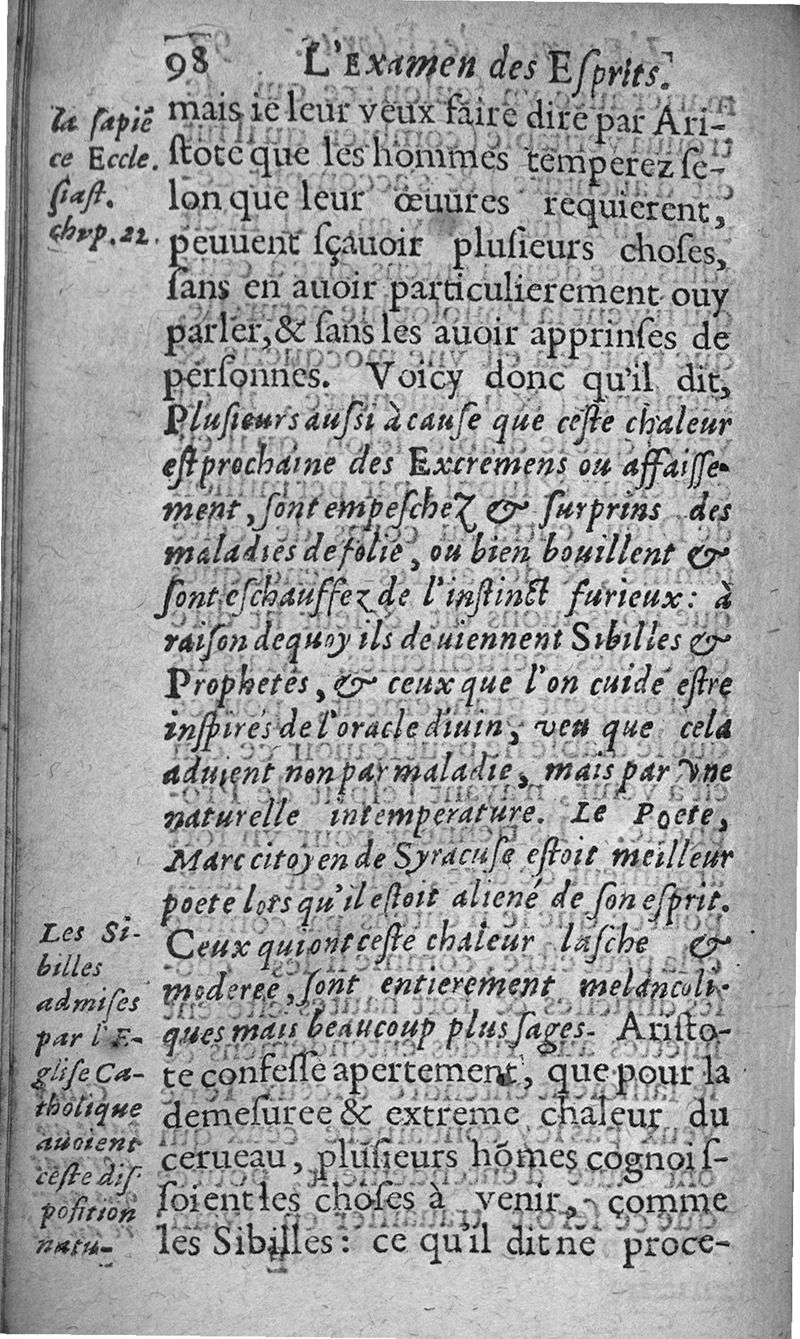 98 L'Examen des Eſprits.
la ſapiē
ce Eccle.
ſiaſt.
chrp. 22.
mais ie leur veux faire dire par Ari-
ſtote que les hommes temperez ſe-
lon que leur œuures requierent,
peuuent ſçauoir pluſieurs choſes,
ſans en auoir particulierement ouy
parler, & ſans les auoir apprinſes de
perſonnes. Voicy donc qu'il dit,
Pluſieurs auſsi à cauſe que ceſte chaleur
eſt prochaine des Excremens ou affaiſſe-
ment, ſont empeſchez & ſurprins des
maladies de folie, ou bien bouillent &
ſont eſchauffez de l'inſtinct furieux: à
raiſon dequoy ils deuiennent Sibilles &
Prophetes, & ceux que l'on cuide eſtre
inſpirés de l'oracle diuin, veu que cela
aduient non par maladie, mais par vne
naturelle intemperature. Le Poete,
Marc citoyen de Syracuſe eſtoit meilleur
poete lors qu'il eſtoit aliené de ſon eſprit.
Ceux qui ont ceſte chaleur laſche &
moderee, ſont entierement melancoli-
ques mais beaucoup plus ſages. Ariſto-
te confeſſe apertement, que pour la
demeſuree & extreme chaleur du
cerueau, pluſieurs hōmes cognoiſ-
ſoient les choſes à venir, comme
les Sibilles: ce qu'il dit ne proce-
Les Si-
billes
admiſes
par l'E-
gliſe Ca-
tholique
auoient
ceſte diſ-
poſition
natu-